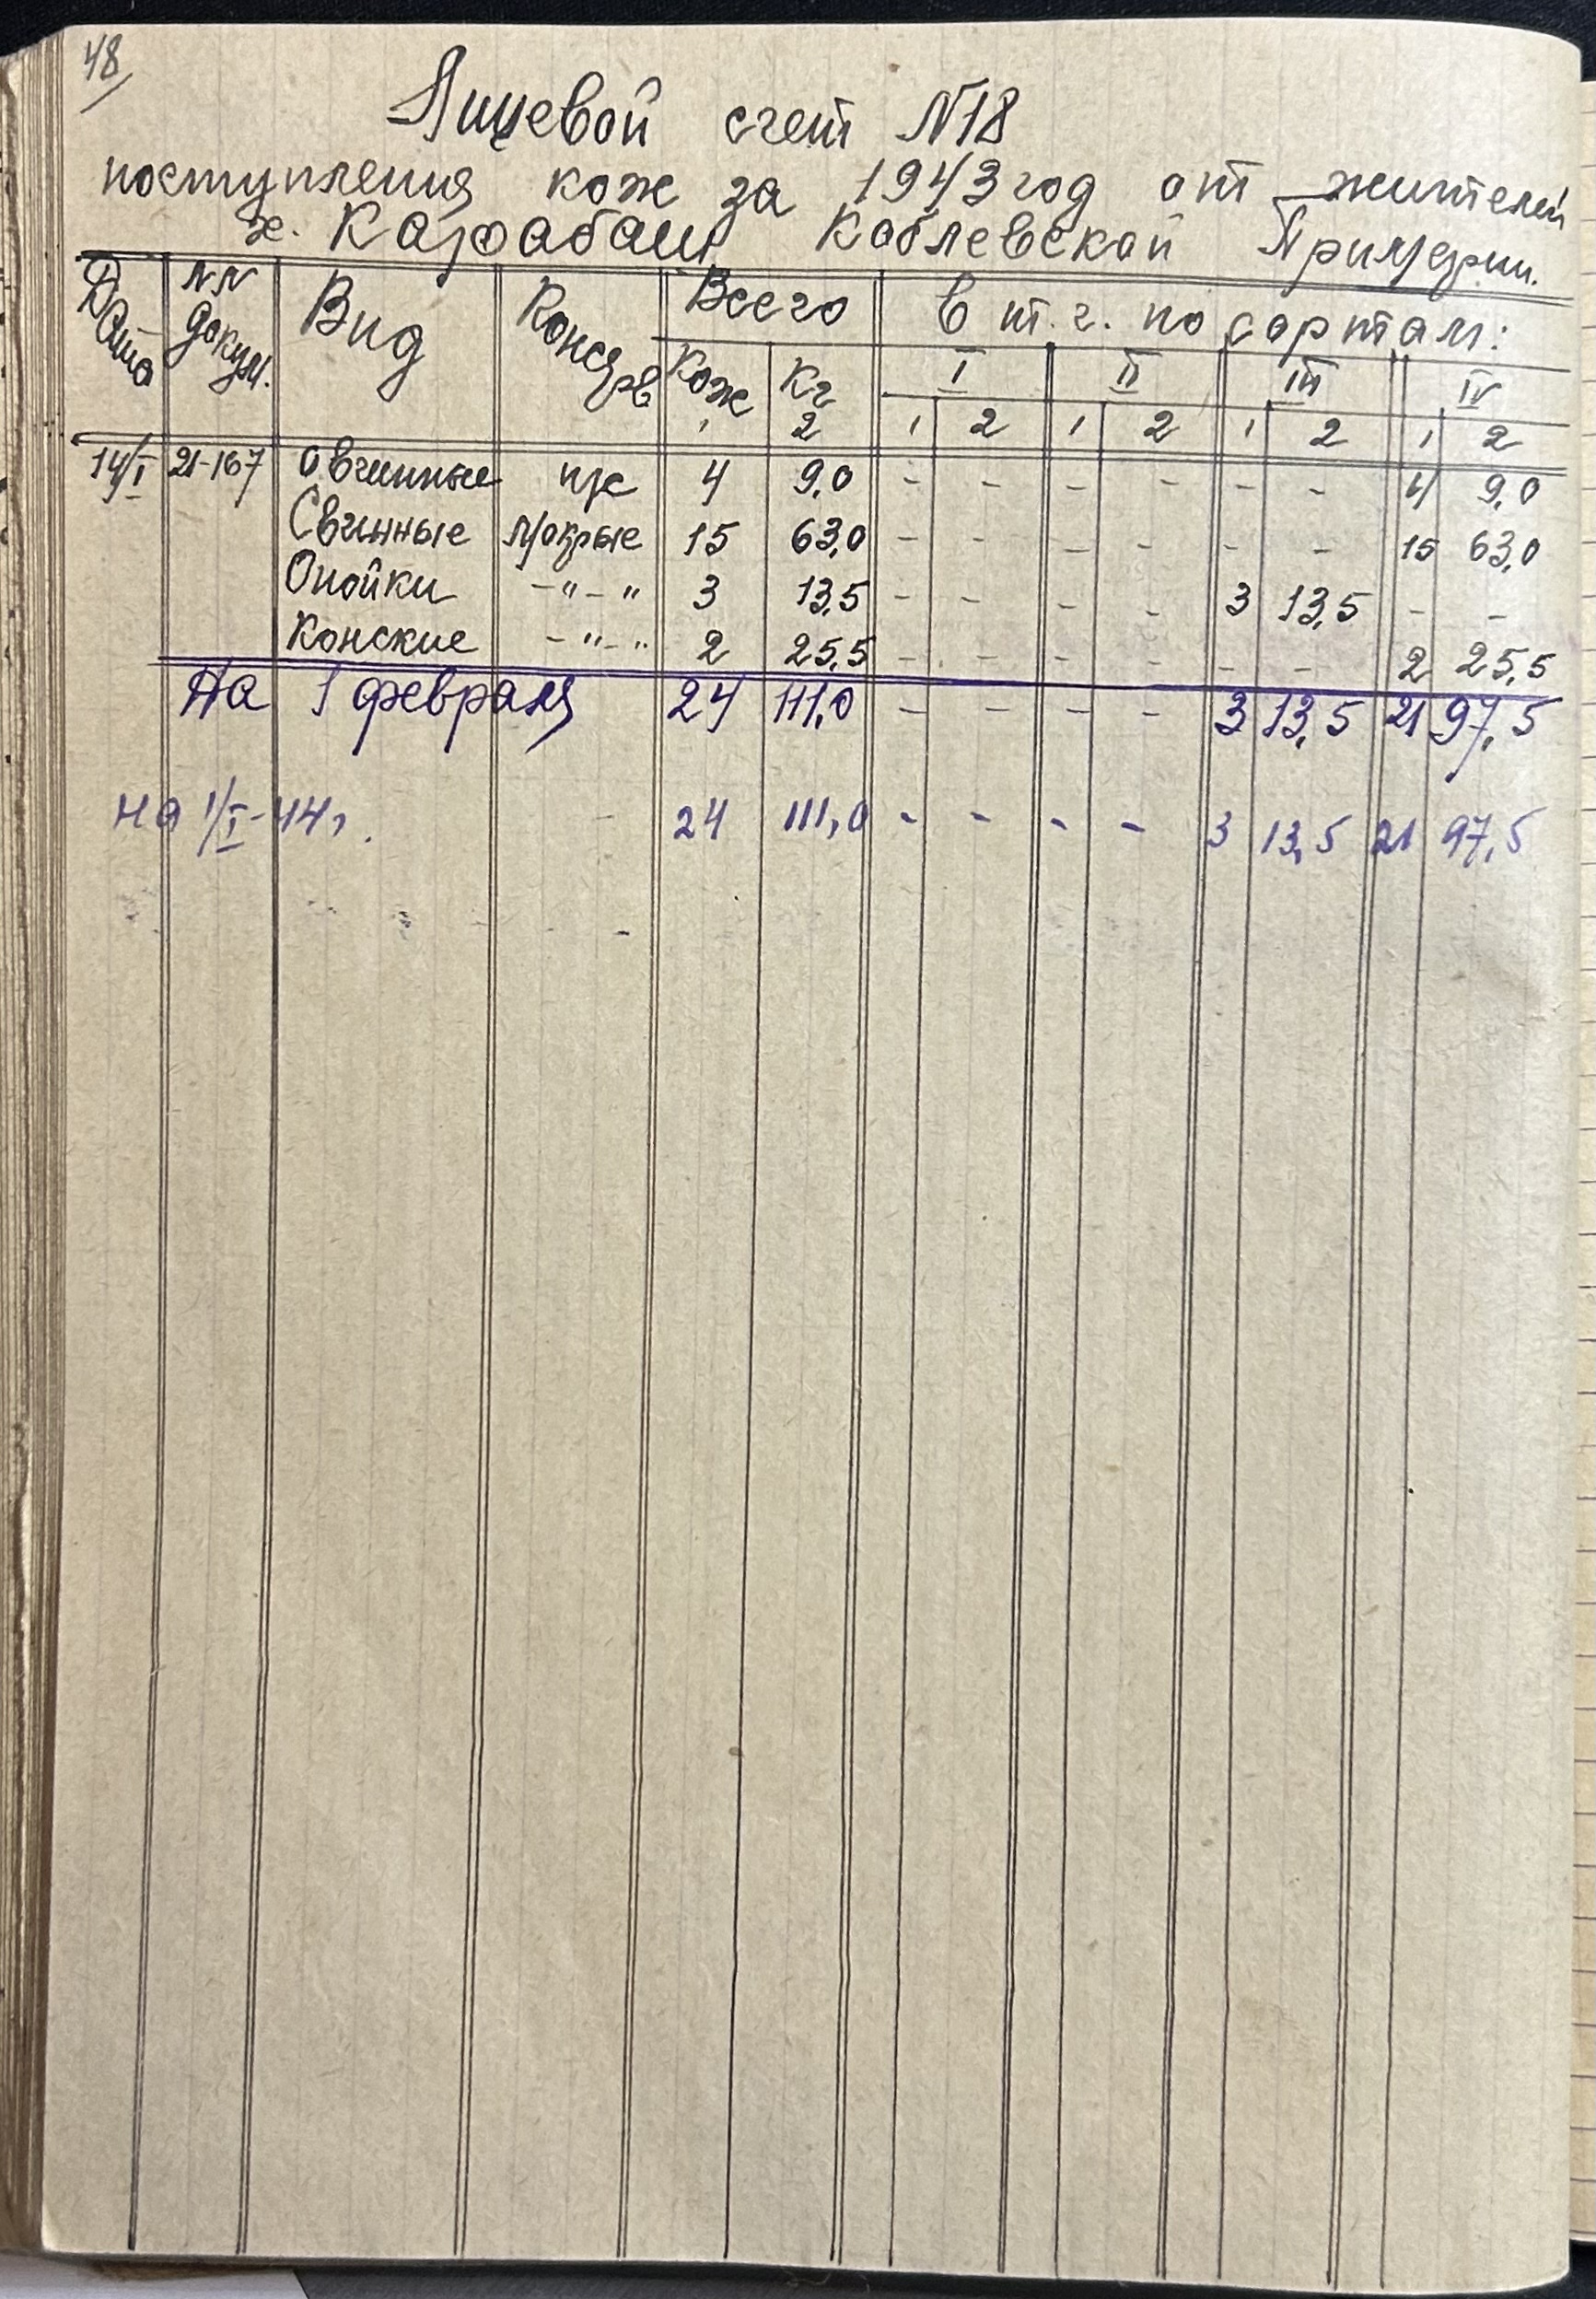 48/
Лицевой счет N18
поступления кож за 1943 год от жителей
х. Карабаш Коблевской Примэрии.
Дата NN докум. Вид Консерв Всего в т. ч. по сортам:
Кож Кг I II III IV
1 2 1 2 1 2 1 2 1 2
14/I 21-167 Овчинные п/с 4 9,0 - - - - - - 4 9,0
Свинные Мокрые 15 63,0 - - - - - - 15 63,0
Опойки -"-" 3 13,5 - - - - 3 13,5 - -
Конские -"-" 2 25,5 - - - - - - 2 25,5
На 1 февраля 24 111,0 - - - - 3 13,5 21 97,5
на 1/I-44г. 24 111,0 - - - - 3 13,5 21 97,5